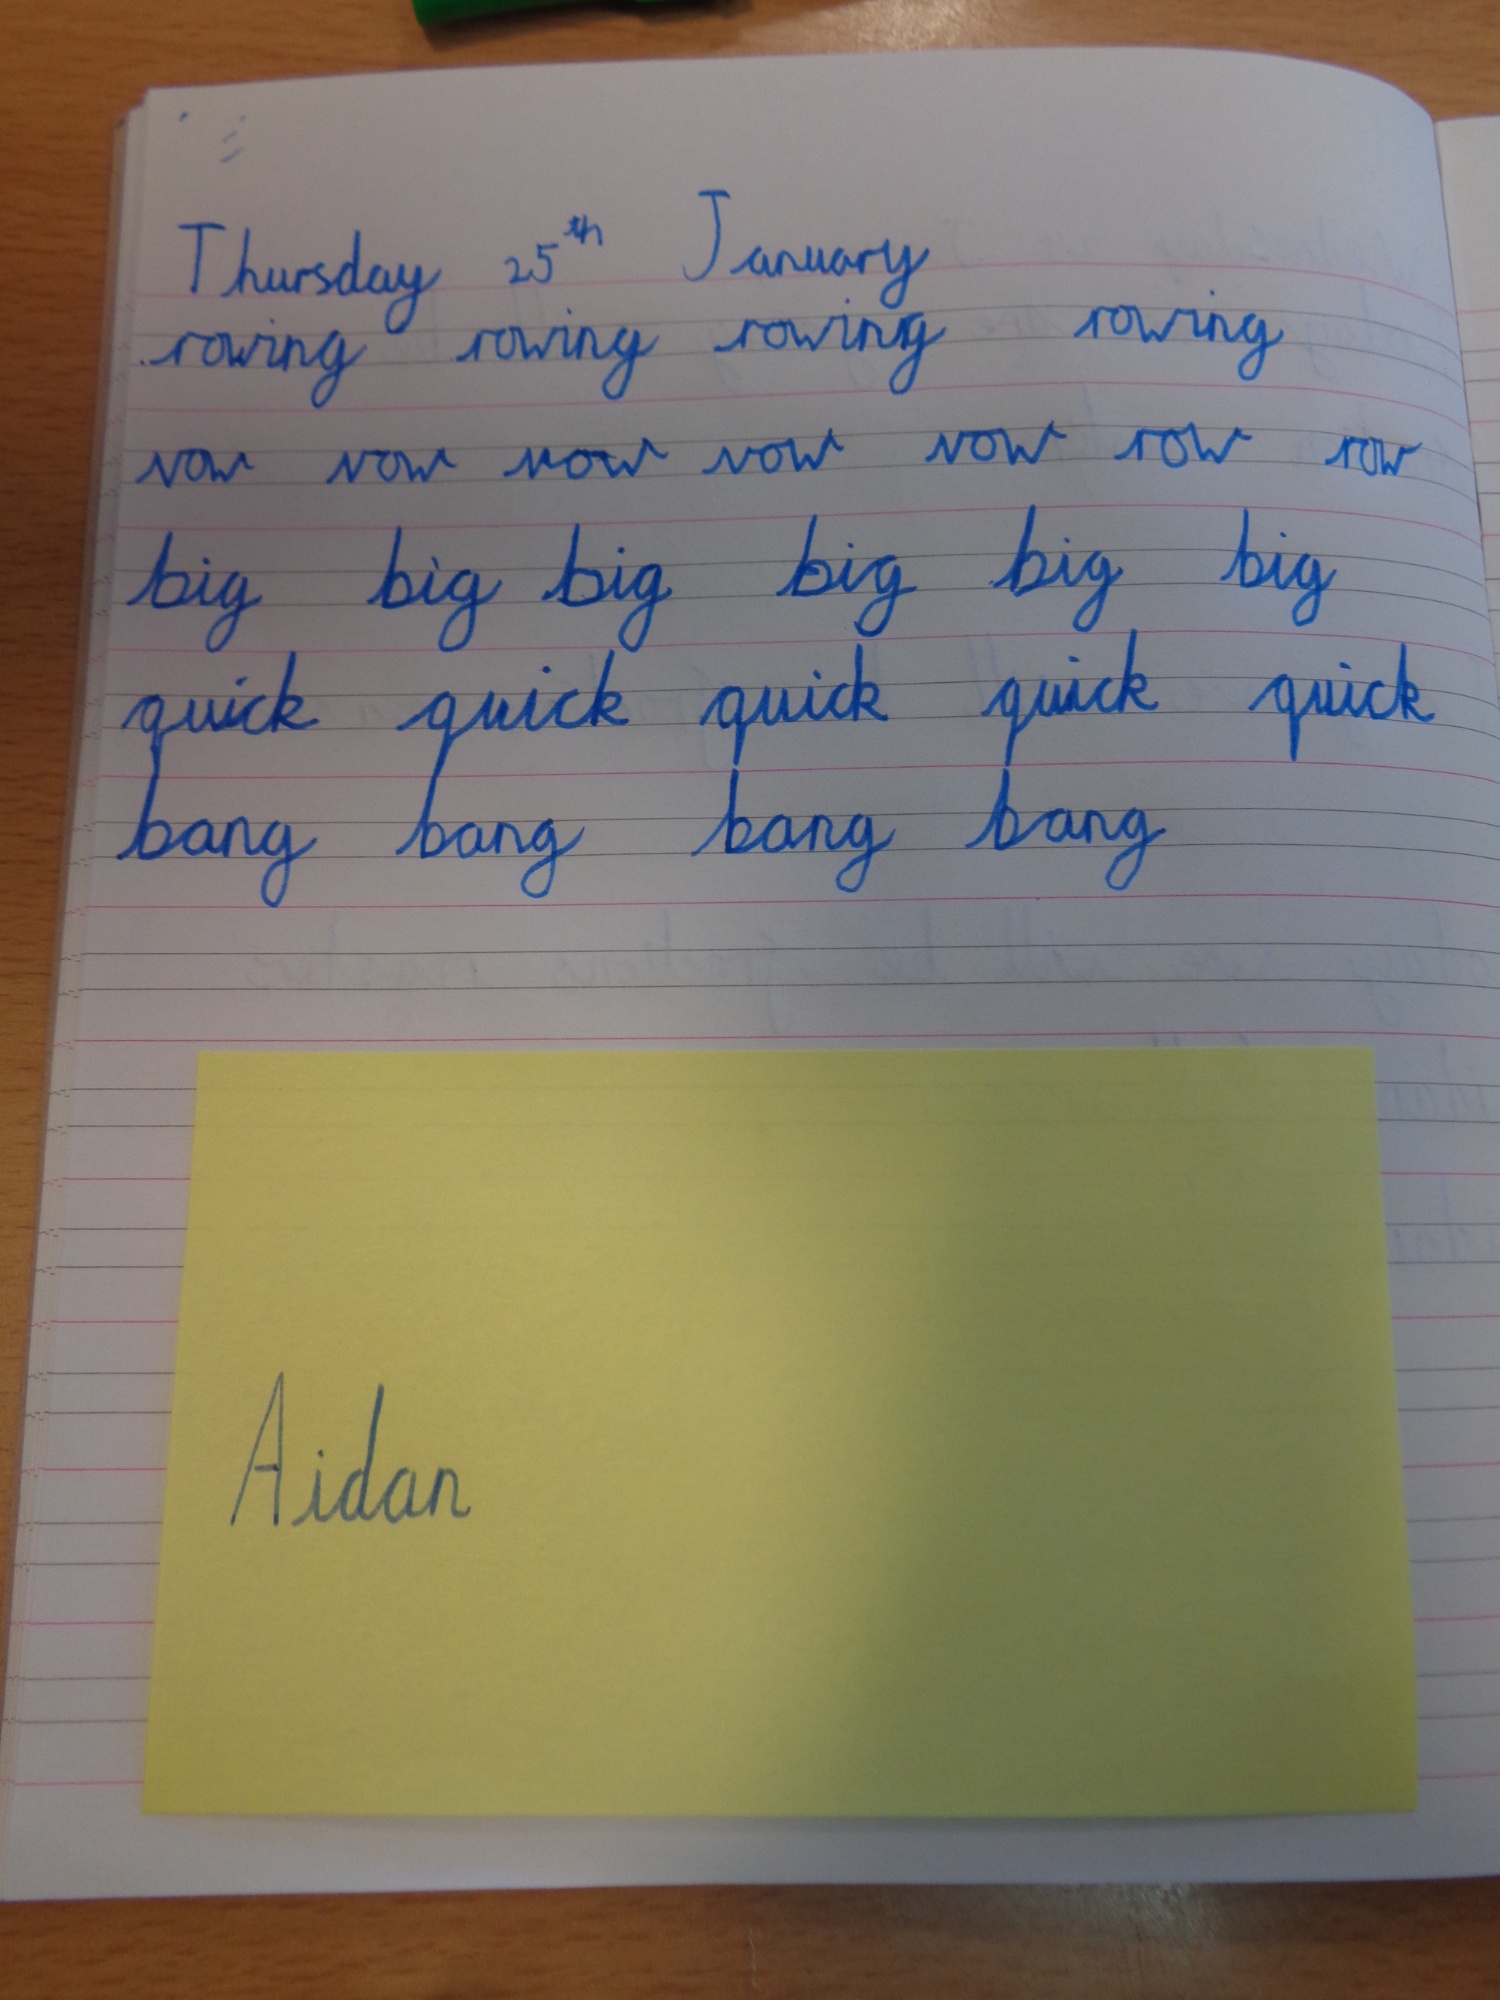 Thursday 25th January
rowing rowing rowing rowing
row row row row row row row
big big big big big big
quick quick quick quick quick
bang bang bang bang
Aidan